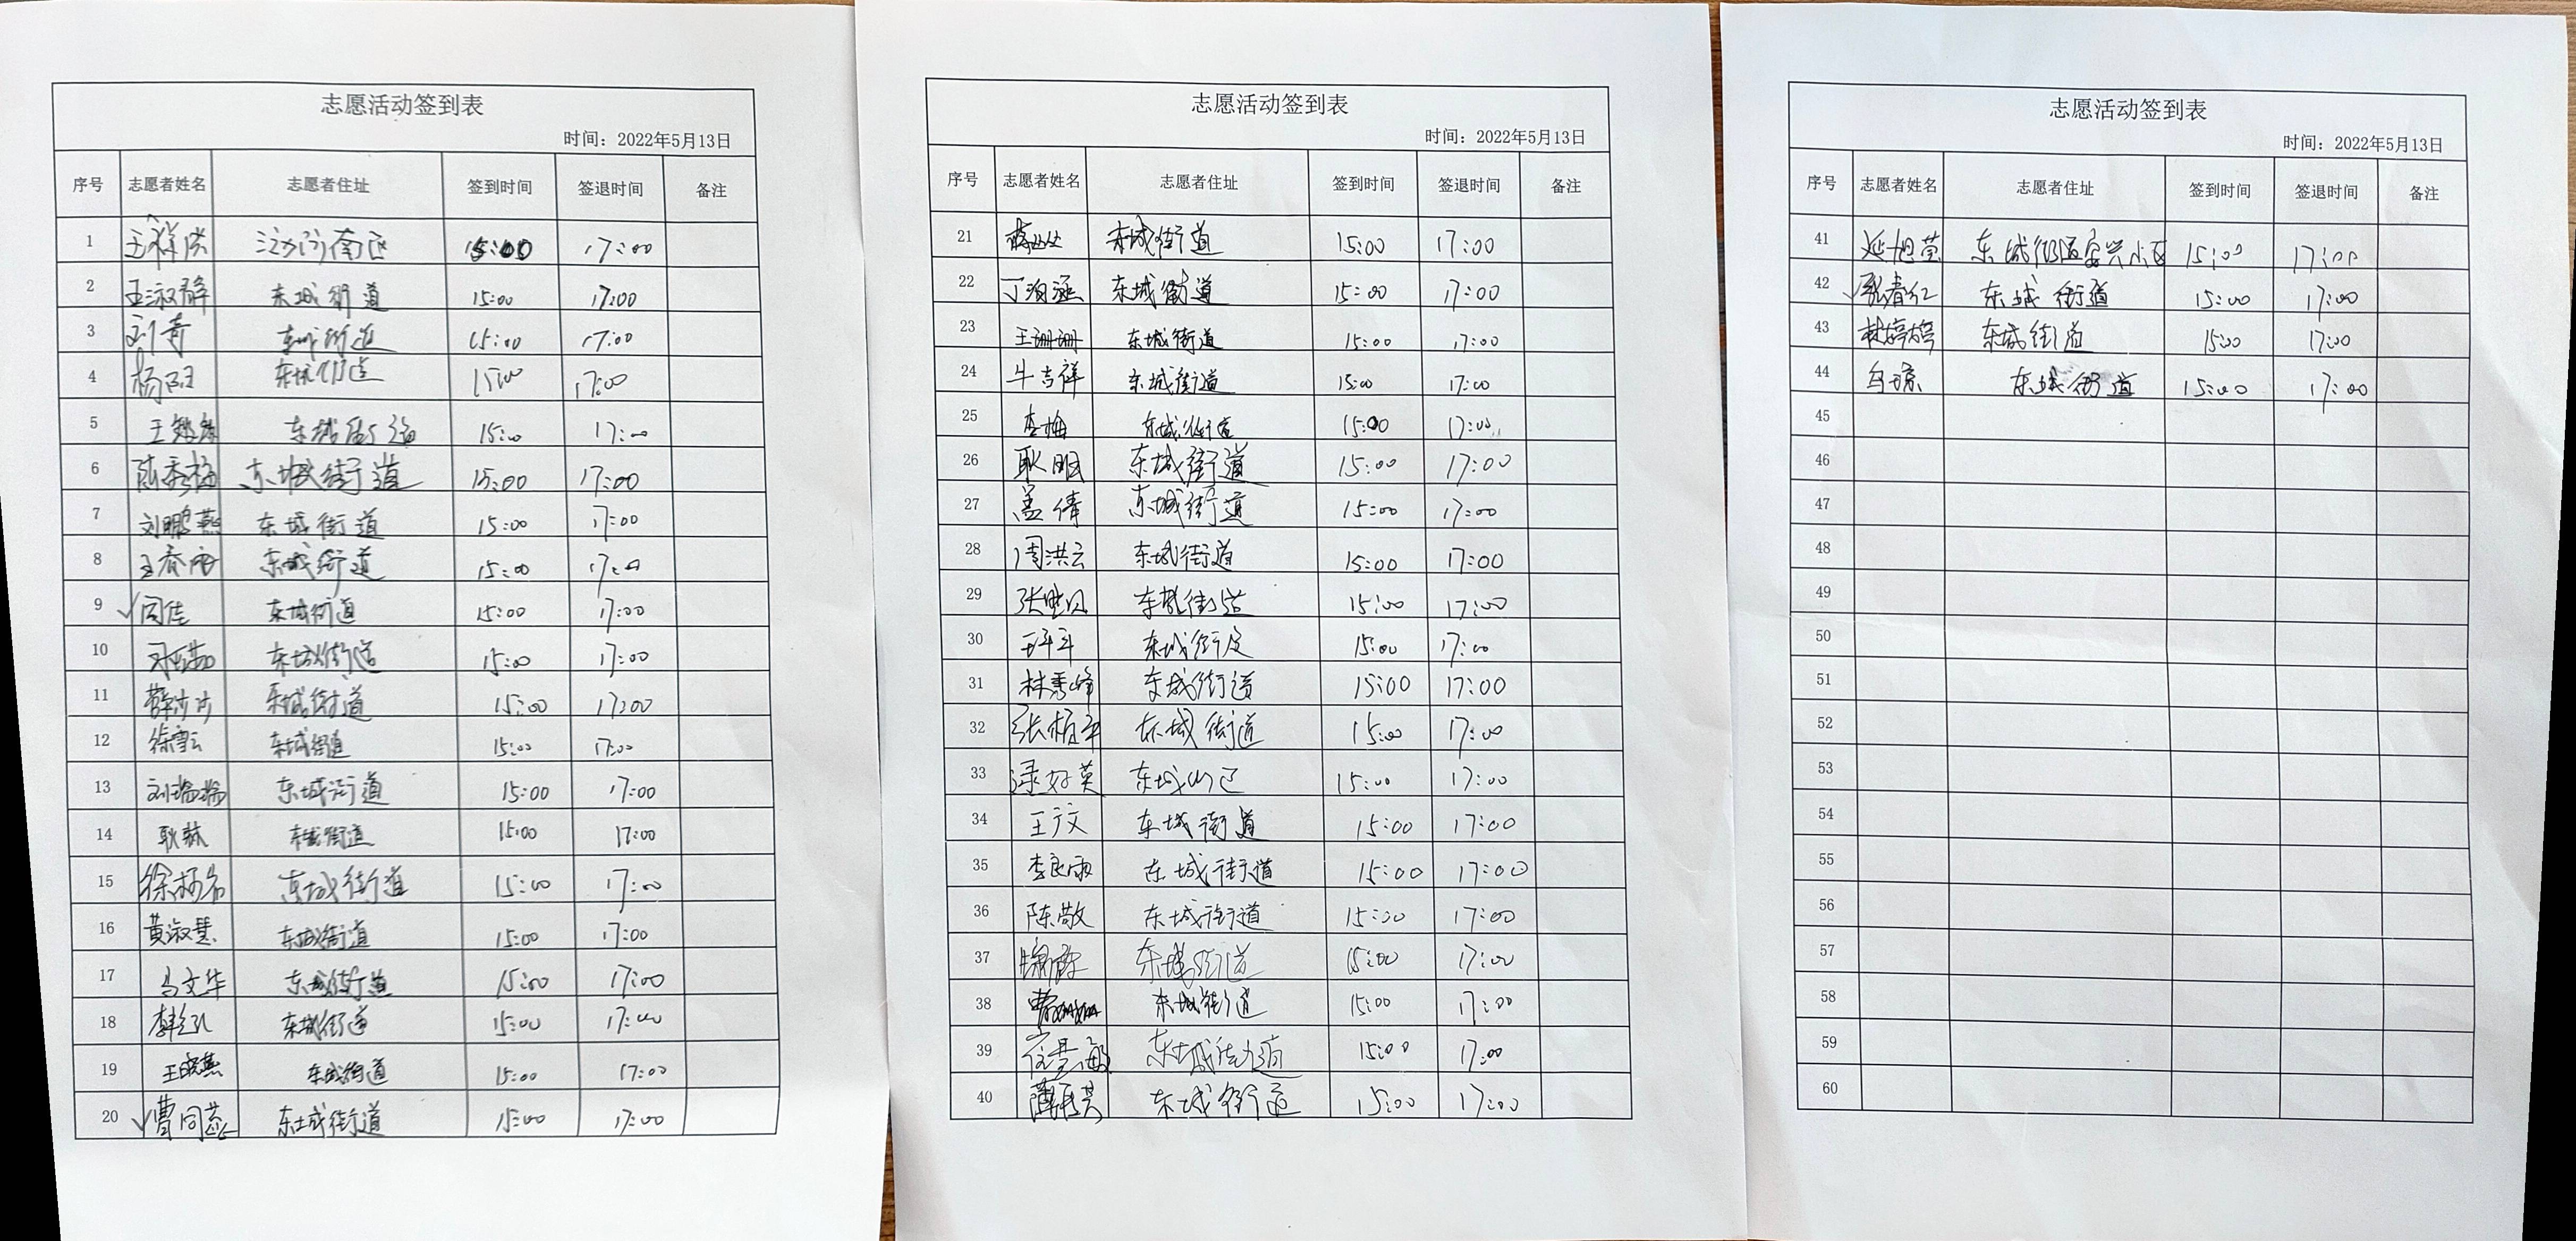 志愿活动签到表
时间：2022年5月13日
序号 志愿者姓名 志愿者住址 签到时间 签退时间 备注
1 王 南区 15:00 17:00
2 王淑静 东城街道 15:00 17:00
3 刘青 东城街道 15:00 17:00
4 杨阳 东城街道 15:00 17:00
5 王 东城街道 15:00 17:00
6 陈秀梅 东城街道 15:00 17:00
7 刘鹏燕 东城街道 15:00 17:00
8 王春雨 东城街道 15:00 17:00
9 闫佳 东城街道 15:00 17:00
10 东城街道 15:00 17:00
11 薛沙沙 东城街道 15:00 17:00
12 徐雪云 东城街道 15:00 17:00
13 刘瑞瑞 东城街道 15:00 17:00
14 耿 东城街道 15:00 17:00
15 徐 东城街道 15:00 17:00
16 黄淑慧 东城街道 15:00 17:00
17 马文华 东城街道 15:00 17:00
18 韩 东城街道 15:00 17:00
19 王晓燕 东城街道 15:00 17:00
20 曹同蕊 东城街道 15:00 17:00
志愿活动签到表
时间：2022年5月13日
序号 志愿者姓名 志愿者住址 签到时间 签退时间 备注
21 东城街道 15:00 17:00
22 丁 涵 东城街道 15:00 17:00
23 王珊珊 东城街道 15:00 17:00
24 牛吉祥 东城街道 15:00 17:00
25 李梅 东城街道 15:00 17:00
26 耿明 东城街道 15:00 17:00
27 盖倩 东城街道 15:00 17:00
28 周洪云 东城街道 15:00 17:00
29 张 东城街道 15:00 17:00
30 东城街道 15:00 17:00
31 林秀峰 东城街道 15:00 17:00
32 张 东城街道 15:00 17:00
33 英 东城 15:00 17:00
34 王文 东城街道 15:00 17:00
35 李良雨 东城街道 15:00 17:00
36 陈敬 东城街道 15:00 17:00
37 东城街道 15:00 17:00
38 曹 东城街道 15:00 17:00
39 敏 东城街道 15:00 17:00
40 薄 东城街道 15:00 17:00
志愿活动签到表
时间：2022年5月13日
序号 志愿者姓名 志愿者住址 签到时间 签退时间 备注
41 延旭莹 东城街道安兴小区 15:00 17:00
42 张春红 东城街道 15:00 17:00
43 林婷婷 东城街道 15:00 17:00
44 东城街道 15:00 17:00
45
46
47
48
49
50
51
52
53
54
55
56
57
58
59
60